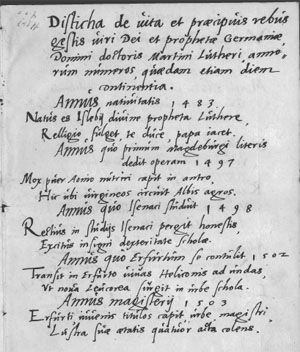 Disticha de vita et præcipuis rebus
gestis viri Dei et prophetæ Germaniæ
Domini doctoris Martini Lutheri, anno-
rum numeros, quædam etiam diem
continentia.
Annus nativitatis 1483.
Natus es Isleby divine propheta Luthere,
Relligio fulget te duce, papa iacet.
Annus quo primum Magdeburgi literis
dedit operam 1497
Mox puer Aonio nutriri capit in antro,
Hic ubi virgineos circuit Albis agros.
Annus quo Isenaci studuit 1498
Rectius in studijs Isenaci pergit honestis,
Exitius insigni dexteritate Scholæ.
Annus quo Erfurtum se contulit 1502
Transit in Erfurto vivas Heliconis ad undas,
Ut nova Leucorea surgit in urbe schola.
Annus magisterij 1503
Erfurti iuvenis titulos capit urbe magistri
Lustra suæ ætatis quatuor acta colens.